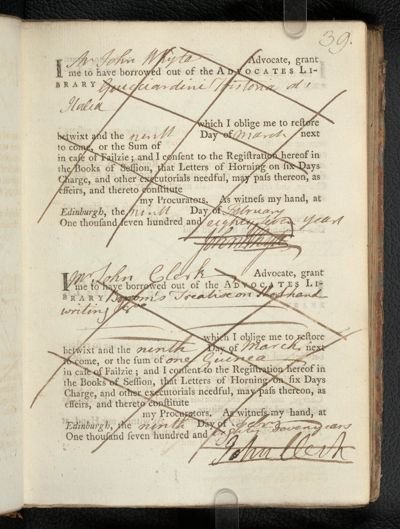 39.
I Mr John Whyte Advocate, grant
me to have borrowed out of the ADVOCATES LI-
BRARY Guiguardini Historia d'
Italia
which I oblige me to restore
betwixt and the ninth Day of March next
to come, or the Sum of
in case of Failzie; and I consent to the Registration hereof in
the Books of Session, that Letters of Horning on six Days
Charge, and other executorials needful, may pass thereon, as
effeirs, and thereto constitute
my Procurators. As witness my hand, at
Edinburgh, the ninth Day of February
One thousand seven hundred and eighty seven years
John Whyte
I Mr John Clerk Advocate, grant
me to have borrowed out of the ADVOCATES LI-
BRARY Treatise on Shorthand
writing
which I oblige me to restore
betwixt and the ninth Day of March next
to come, or the sum of one Guinea
in case of Failzie; and I consent to the Registration hereof in
the Books of Session, that Letters of Horning on six Days
Charge, and other executorials needful, may pass thereon, as
effeirs, and thereto constitute
my Procurators. As witness my hand, at
Edinburgh, the ninth Day of
One thousand seven hundred and eighty seven years
John Clerk